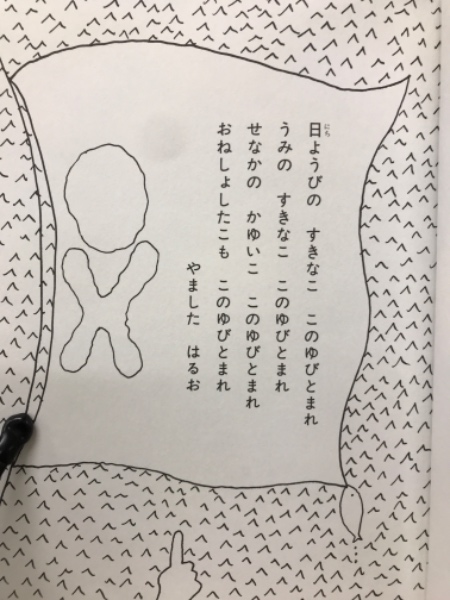 日ようびの　すきなこ　このゆびとまれ
うみの　すきなこ　このゆびとまれ
せなかの　かゆいこ　このゆびとまれ
おねしょしたこも　このゆびとまれ
やました　はるお
にち